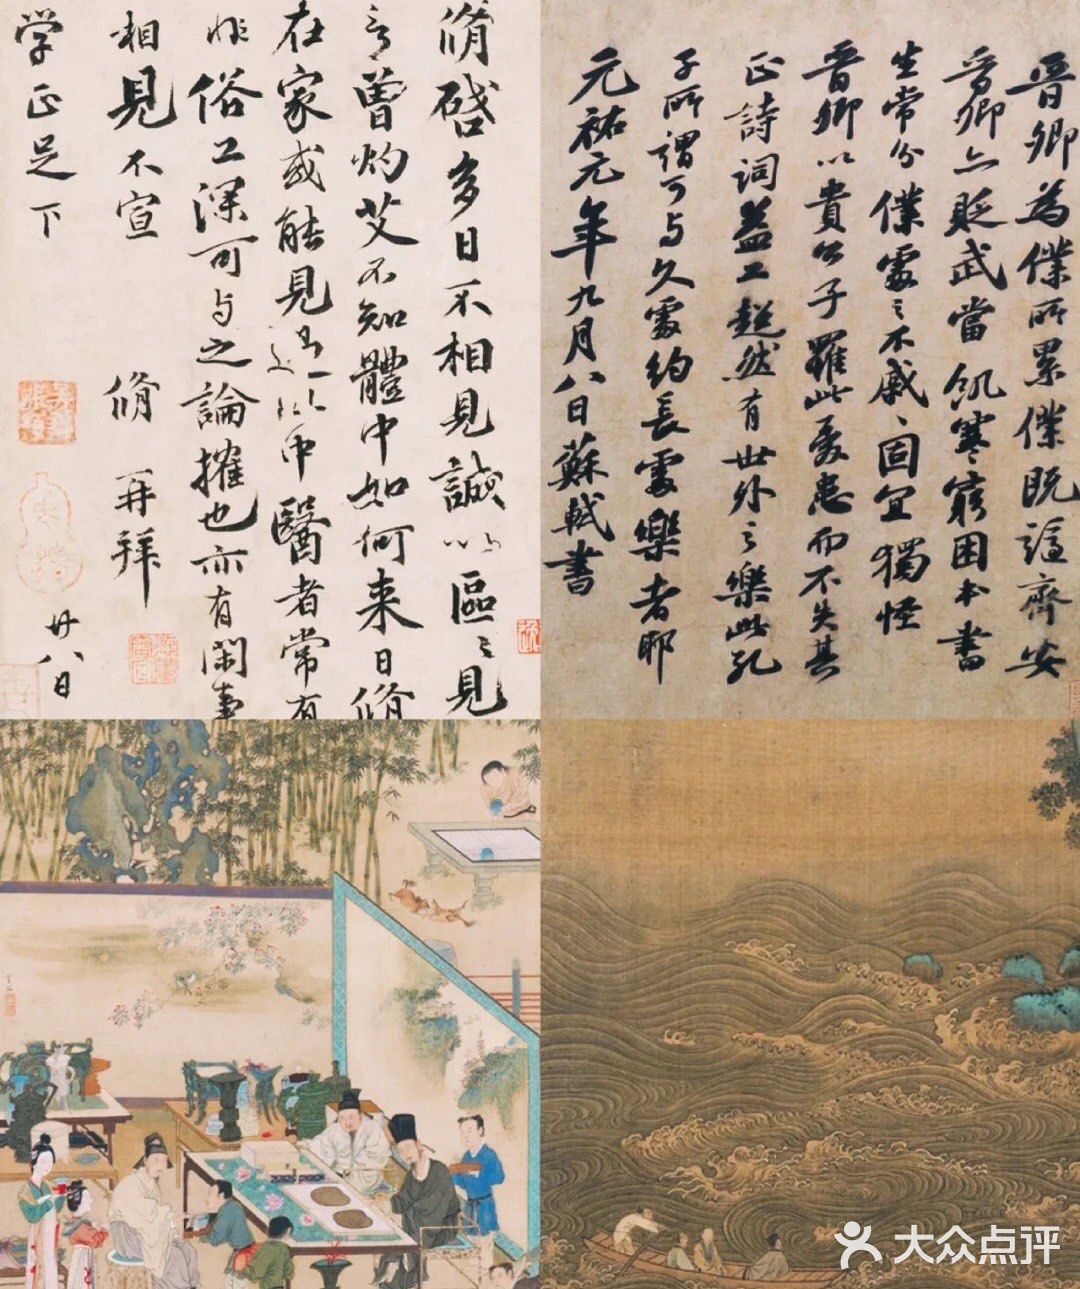 脩啓多日不相見誠以區〻見
言曾灼艾不知體中如何来日脩
在家或能見過此中醫者常有
非俗工深可与之論搉也亦有閑事
相見不宣 脩 再拜
学正足下 廿八日
晋卿為僕所累僕既謫齊安
晋卿亦貶武當飢寒窮困本書
生常分僕處之不戚〻固宜獨怪
晋卿以貴公子罹此憂患而不失其
正詩詞益工超然有世外之樂此孔
子所謂可与久處約長處樂者耶
元祐元年九月八日蘇軾書
大众点评